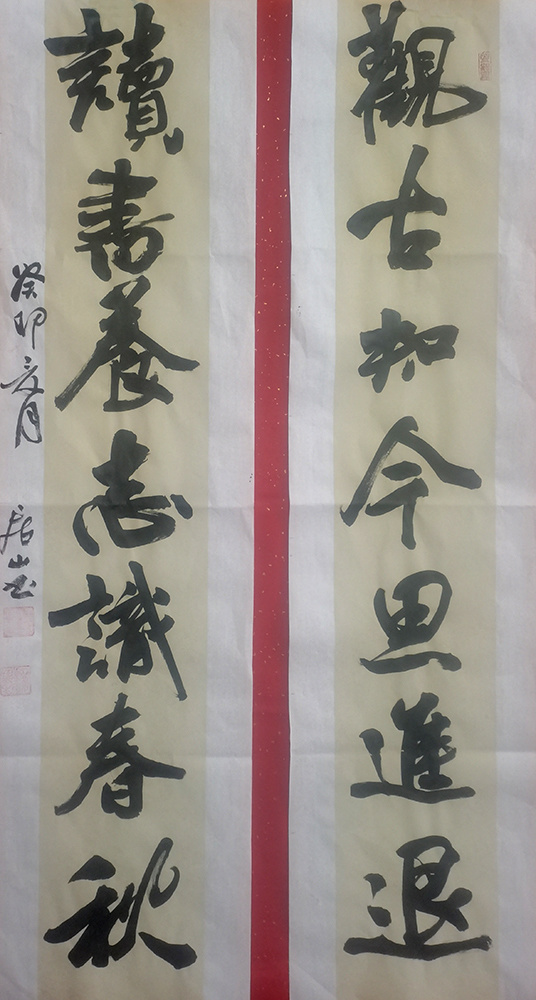 觀古知今思進退
讀書養志識春秋
癸卯之月 居山书